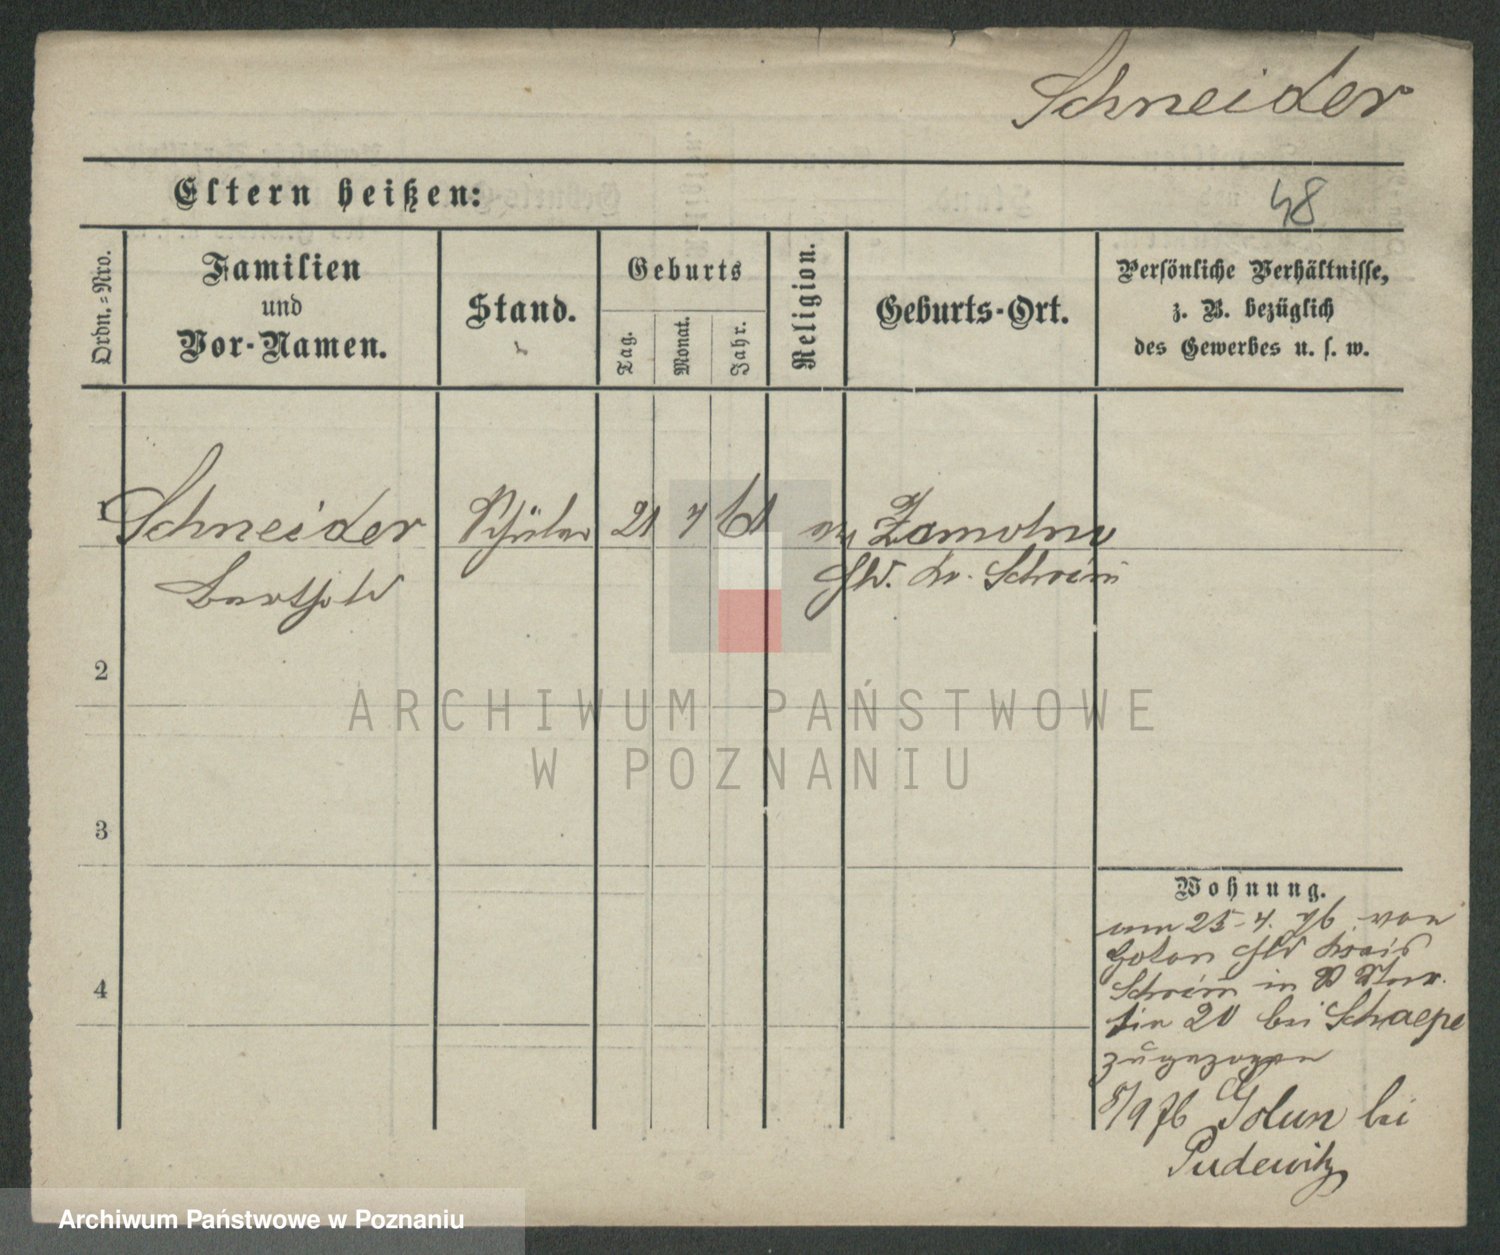 Schneider
Eltern heißen:
48
Ordn.=Nro.
Familien
und
Vor-Namen.
Stand.
Geburts
Tag.
Monat.
Jahr.
Religion.
Geburts-Ort.
Persönliche Verhältnisse,
z. B. bezüglich
des Gewerbes u. s. w.
1 Schneider Schüler 21 7 61 ev
Barthold Kr. Schrim
2
ARCHIWUM PAŃSTWOWE
W POZNANIU
3
4
Wohnung.
am 25-4. 76 von
Kreis
Schrim in
20 bei Schaepe
zugezogen
8/9 76 Golun bei
Pudewitz
Archiwum Państwowe w Poznaniu